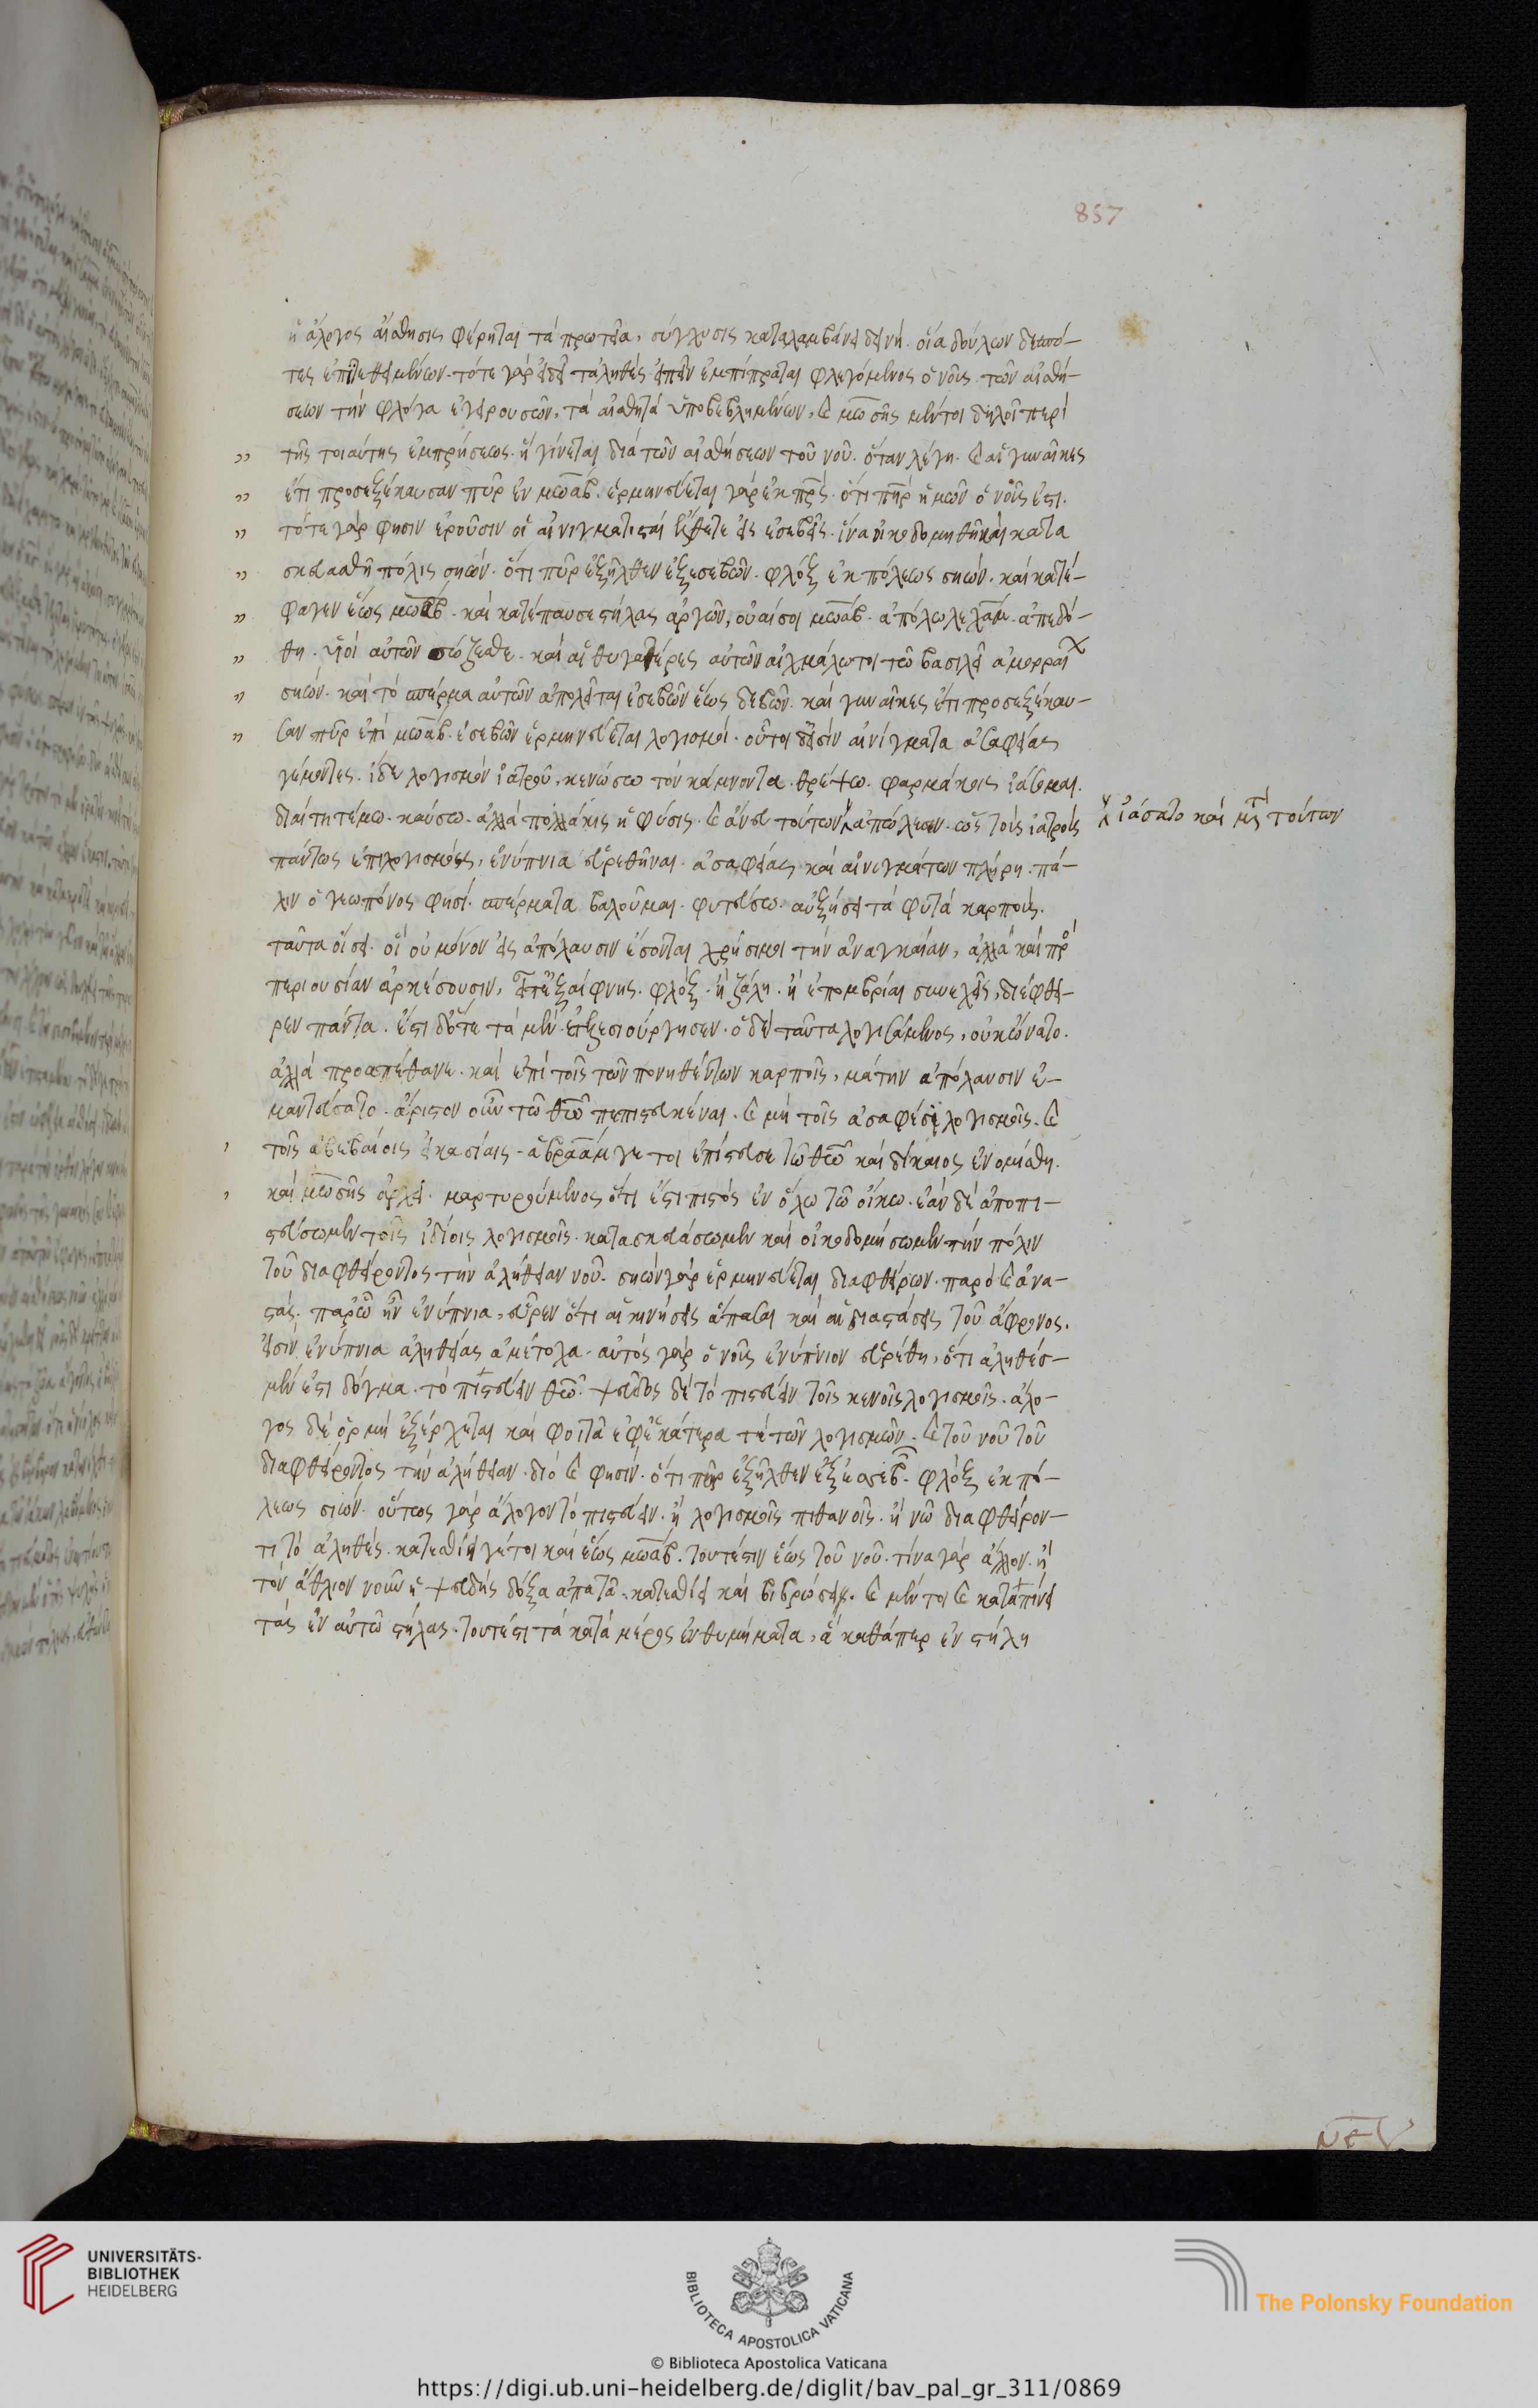 857
ἡ ἄλογος αἴσθησις φέρηται τὰ πρωτεῖα, σύγχυσις καταλαμβάνει δεινὴ. οἷα δούλων δεσπό-
τες ἐπιτεθειμένων. τότε γὰρ εἰ δεῖ τἀληθὲς εἰπεῖν ἐμπίπραται φλεγόμενος ὁ νοῦς. τῶν αἰσθή-
σεων τὴν φλόγα ἐγειρουσῶν, τὰ αἰσθητὰ ὑποβεβλημένων, καὶ μωσῆς μέντοι δηλοῖ περὶ
τῆς τοιαύτης ἐμπρήσεως. ἡ γίνεται διὰ τῶν αἰσθήσεων τοῦ νοῦ. ὅταν λέγη. καὶ αἱ γυναῖκες
ἔτι προσεξέκαυσαν πῦρ ἐν μωὰβ. ἑρμηνεύεται γὰρ ἐκ πρς. ὅτι πηρ ἡμῶν ὁ νοῦς ἐστι.
τότε γὰρ φησιν ἐροῦσιν οἱ αἰνιγματισταὶ ἔλθετε εἰς ἐσεβεῖς. ἵνα οἰκοδομηθῆ καὶ κατα
σκευασθῆ πόλις σηών. ὅτι πῦρ ἐξῆλθεν ἐξ ἐσεβῶν. φλὸξ ἐκ πόλεως σηών. καὶ κατέ-
φαγεν ἕως μωὰβ. καὶ κατέπαυσε στήλας ἀργῶν, οὐαί σοι μωὰβ. ἀπόλωλε χαμ. ἀπεδό-
θη. υἱοὶ αὐτῶν σώζεσθε. καὶ αἱ θυγατέρες αὐτῶν αἰχμάλωτοι τῶ βασιλεῖ ἀμορραι
σηών. καὶ τὸ σπέρμα αὐτῶν ἀπολεῖται ἐσεβῶν ἕως δεβῶν. καὶ γυναῖκες ἔτι προσεξέκαυ-
σαν πῦρ ἐπὶ μωὰβ. ἐσεβῶν ἑρμηνεύεται λογισμοὶ. οὗτοι δ' εἰσὶν αἰνίγματα ἀσαφείας
γέμοντες. ἴδε λογισμὸν ἰατροῦ, κενώσω τὸν κάμνοντα. θρέψω. φαρμάκοις ἰάσομαι.
διαίτη τέμω. καύσω. ἀλλὰ πολλάκις ἡ φύσις. καὶ ἄνευ τούτων ἀπώλεσεν. ὡς τοὺς ἰατροὺς
ἰάσατο καὶ μετὰ τούτων
πάντως ἐπιλογισμοὺς, ἐνύπνια εὑρεθῆναι. ἀσαφείας καὶ αἰνιγμάτων πλήρη. πά-
λιν ὁ γεωπόνος φησί. σπέρματα βαλοῦμαι. φυτεύσω. αὐξήσει τὰ φυτὰ καρποὺς.
ταῦτα οἴσει. οἳ οὐ μόνον εἰς ἀπόλαυσιν ἔσονται χρήσιμοι τὴν ἀναγκαίαν, ἀλλὰ καὶ πρὸ
περιουσίαν ἀρκέσουσιν, εἶτ' ἐξαίφνης. φλὸξ. ἢ ζάλη. ἢ ἐπομβρίαι συνεχεῖς, διέφθει-
ρεν πάντα. ἔστι δ' ὅτε τὰ μὲν ἐτελεσιούργησεν. ὁ δὲ ταῦτα λογισάμενος, οὐκ ὤνατο.
ἀλλὰ προαπέθανε. καὶ ἐπὶ τοῖς τῶν πονηθέντων καρποῖς, μάτην ἀπόλαυσιν ἐ-
μαντεύσατο. ἄριστον οὖν τῶ θεῶ πεπιστευκέναι. καὶ μὴ τοῖς ἀσαφέσι λογισμοῖς. καὶ
τοῖς ἀβεβαίοις εἰκασίαις. ἀβραάμ γέ τοι ἐπίστευσε τῶ θεῶ καὶ δίκαιος ἐνομίσθη.
καὶ μωσῆς ἄρχει. μαρτυρούμενος ὅτι ἐστι πιστὸς ἐν ὅλω τῶ οἴκω. ἐὰν δὲ ἀποπι-
στεύσωμεν τοῖς ἰδίοις λογισμοῖς. κατασκευάσωμεν καὶ οἰκοδομήσωμεν τὴν πόλιν
τοῦ διαφθείροντος τὴν ἀλήθειαν νοῦ. σηών γὰρ ἑρμηνεύεται διαφθείρων. παρὸ καὶ ἀνα-
στὰς. παρ' ὧ ἦν ἐνύπνια, εὗρεν ὅτι αἱ κινήσεις ἅπασαι καὶ αἱ διαστάσεις τοῦ ἄφρονος.
εἰσιν ἐνύπνια ἀληθείας ἀμέτοχα. αὐτὸς γὰρ ὁ νοῦς ἐνύπνιον εὑρέθη, ὅτι ἀληθὲς-
μέν ἐστι δόγμα. τὸ πιστεύειν θεῶ. ψεῦδος δὲ τὸ πιστεύειν τοῖς κενοῖς λογισμοῖς. ἄλο-
γος δὲ ὁρμὴ ἐξέρχεται καὶ φοιτᾶ ἐφ' ἑκάτερα τέ τῶν λογισμῶν. καὶ τοῦ νοῦ τοῦ
διαφθείροντος τὴν ἀλήθειαν. διὸ καὶ φησιν. ὅτι πῦρ ἐξῆλθεν ἐξ ἐσεβ. φλὸξ ἐκ πό-
λεως σιών. οὕτως γὰρ ἄλογον τὸ πιστεύειν. ἢ λογισμοῖς πιθανοῖς. ἢ νῶ διαφθείρον-
τι τὸ ἀληθὲς. κατεσθίει γέ τοι καὶ ἕως μωὰβ. τουτέστιν ἕως τοῦ νοῦ. τίνα γὰρ ἄλλον. ἢ
τὸν ἄθλιον νοῦν ἡ ψευδὴς δόξα ἀπατᾶ. κατεσθίει καὶ βιβρώσκει. καὶ μέν τοι καὶ καταπίνει
τὰς ἐν αὐτῶ στήλας. τουτέστι τὰ κατὰ μέρος ἐνθυμήματα, ἃ καθάπερ ἐν στήλη
UNIVERSITÄTS-
BIBLIOTHEK
HEIDELBERG
BIBLIOTECA APOSTOLICA VATICANA
The Polonsky Foundation
© Biblioteca Apostolica Vaticana
https://digi.ub.uni-heidelberg.de/diglit/bav_pal_gr_311/0869